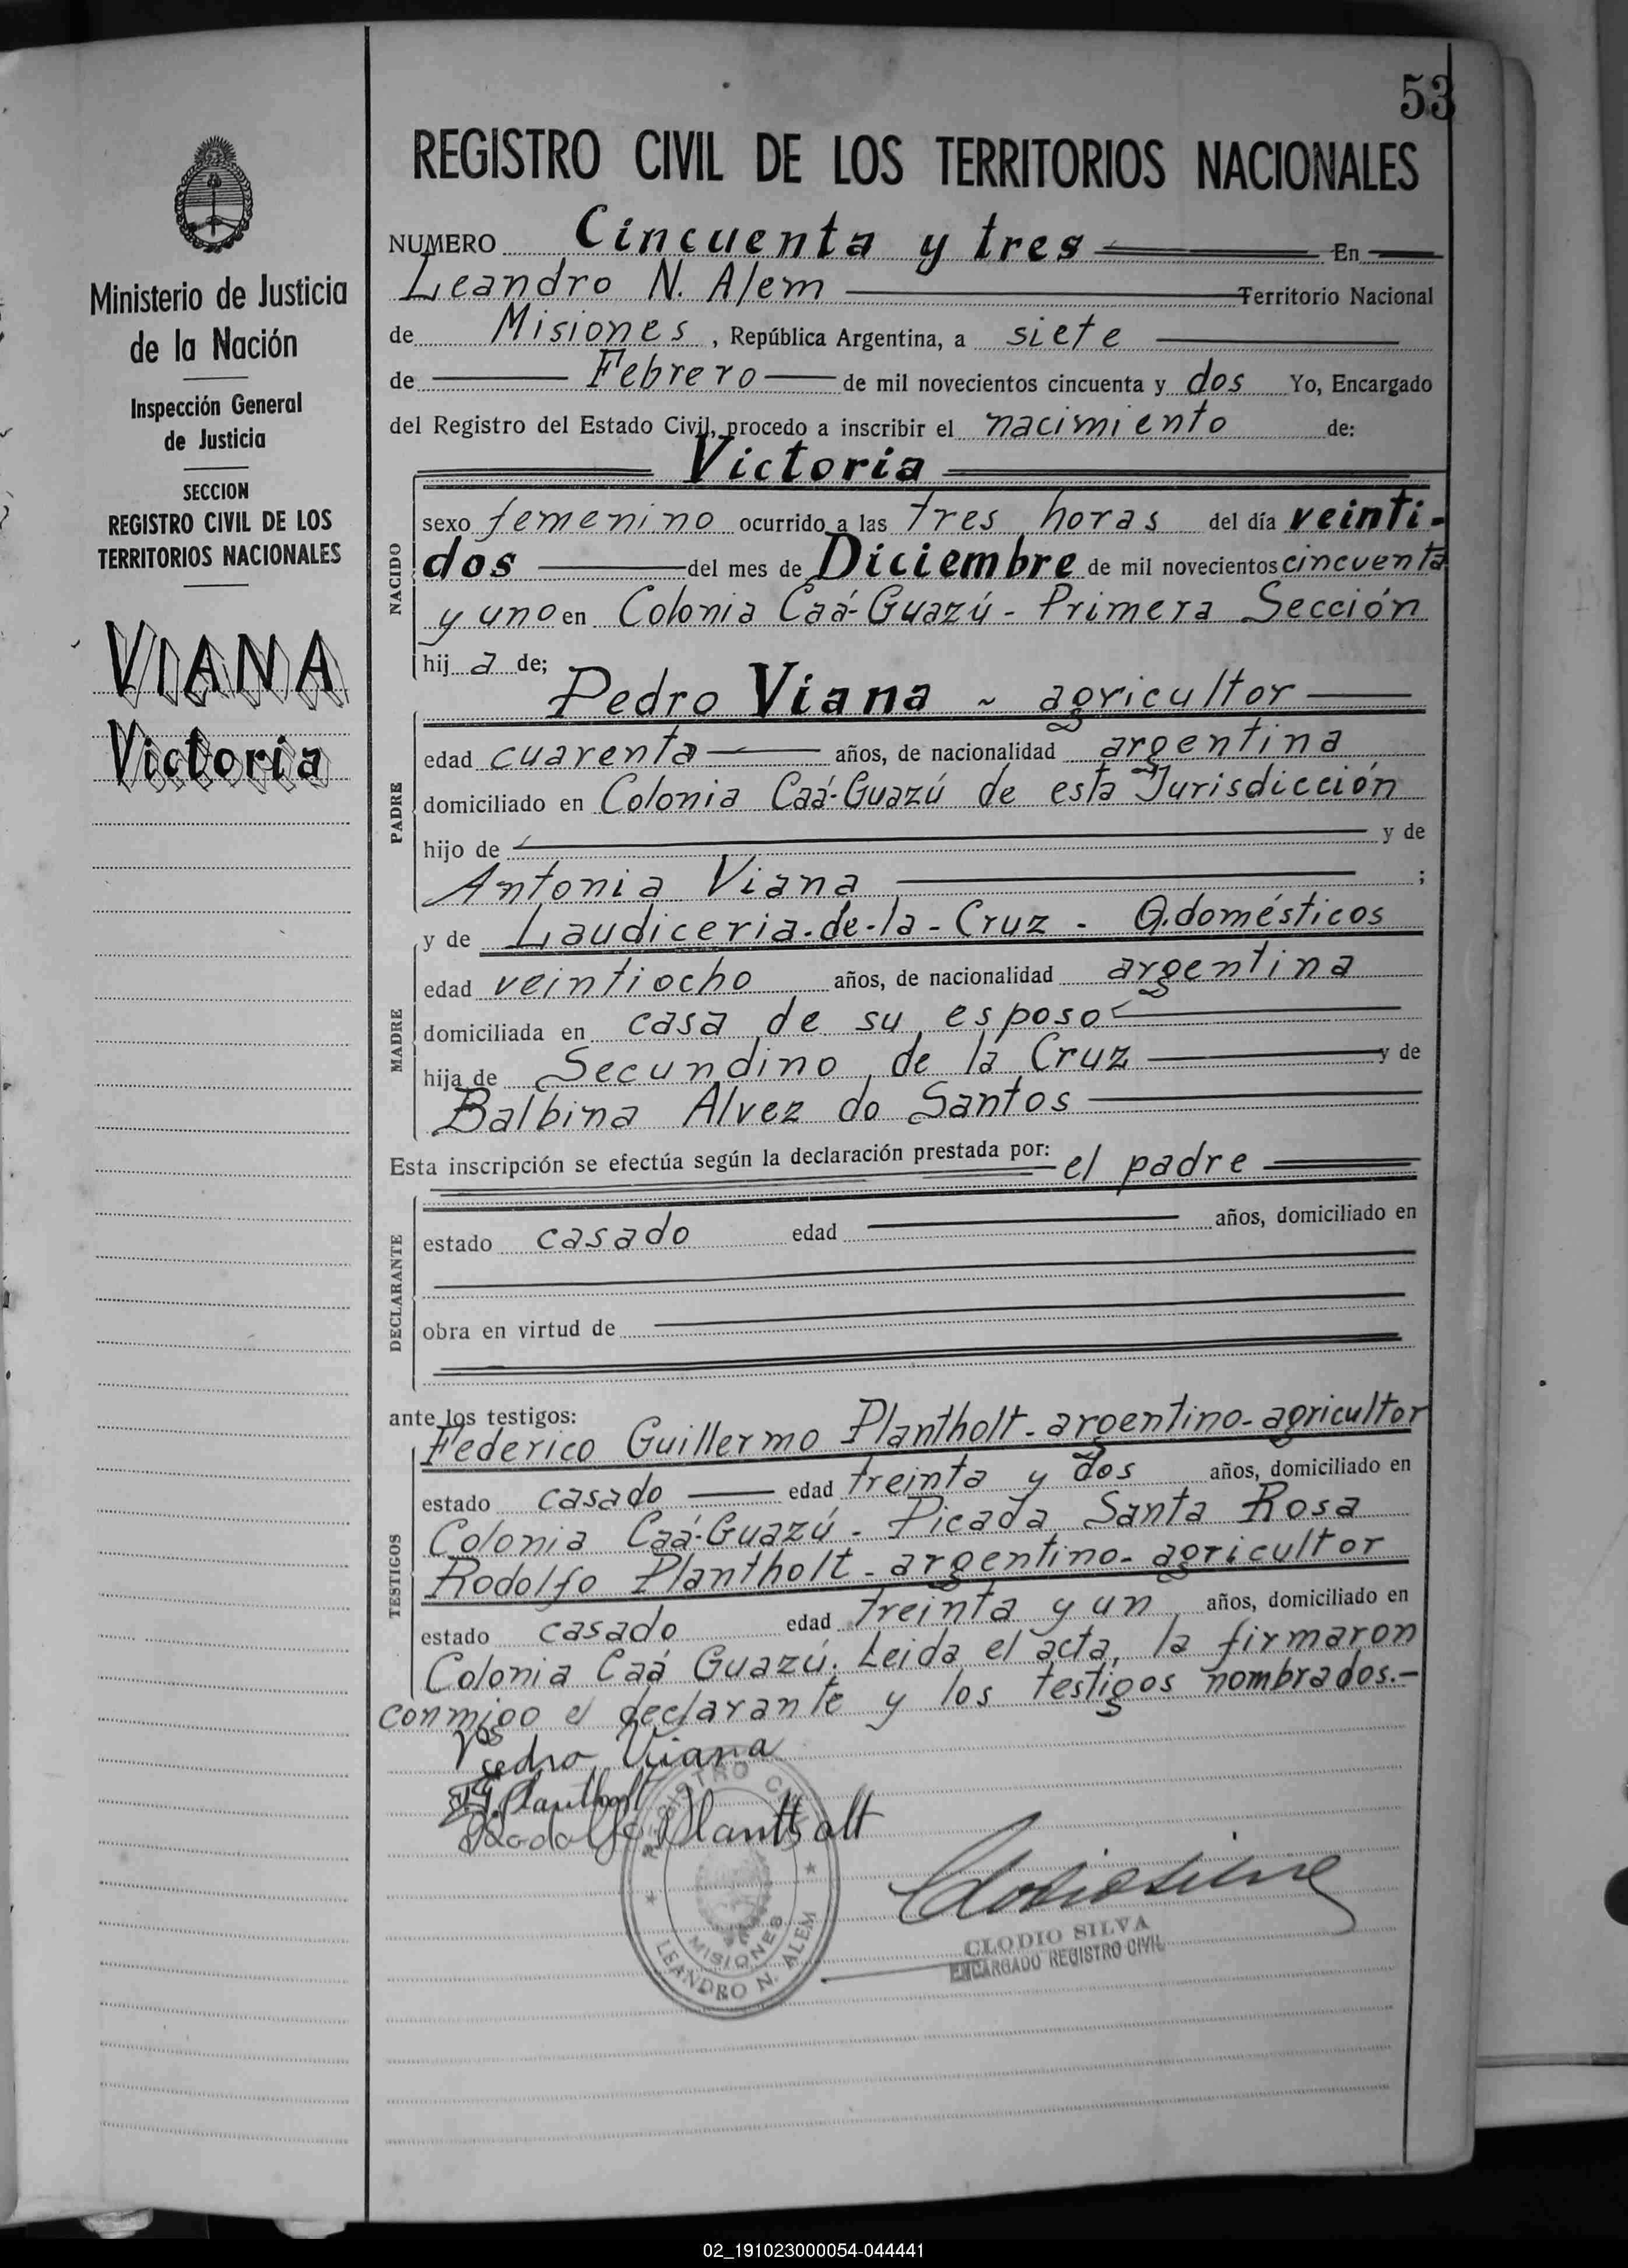 53
REGISTRO CIVIL DE LOS TERRITORIOS NACIONALES
Ministerio de Justicia
de la Nación
Inspección General
de Justicia
SECCION
REGISTRO CIVIL DE LOS
TERRITORIOS NACIONALES
VIANA
Victoria
NUMERO Cincuenta y tres En
Leandro N. Alem Territorio Nacional
de Misiones, República Argentina, a siete
de Febrero de mil novecientos cincuenta y dos Yo, Encargado
del Registro del Estado Civil, procedo a inscribir el nacimiento de:
Victoria
NACIDO
sexo femenino ocurrido a las tres horas del día veinti-
dos del mes de Diciembre de mil novecientos cincuenta
y uno en Colonia Caá-Guazú - Primera Sección
hij a de;
Pedro Viana - agricultor
PADRE
edad cuarenta años, de nacionalidad argentina
domiciliado en Colonia Caá-Guazú de esta Jurisdicción
hijo de y de
Antonia Viana ;
y de Laudiceria-de-la-Cruz - Q.domésticos
MADRE
edad veintiocho años, de nacionalidad argentina
domiciliada en casa de su esposo
hija de Secundino de la Cruz y de
Balbina Alvez do Santos
Esta inscripción se efectúa según la declaración prestada por: el padre
DECLARANTE
estado casado edad años, domiciliado en
obra en virtud de
ante los testigos:
Federico Guillermo Plantholt-argentino-agricultor
TESTIGOS
estado casado edad treinta y dos años, domiciliado en
Colonia Caá-Guazú - Picada Santa Rosa
Rodolfo Plantholt-argentino-agricultor
estado casado edad treinta y un años, domiciliado en
Colonia Caá Guazú. Leida el acta, la firmaron
conmigo el declarante y los testigos nombrados.-
Pedro Viana
Plantholt
Rodolfo Plantholt
REGISTRO CIVIL
MISIONES
LEANDRO N. ALEM
CLODIO SILVA
ENCARGADO REGISTRO CIVIL
02_191023000054-044441